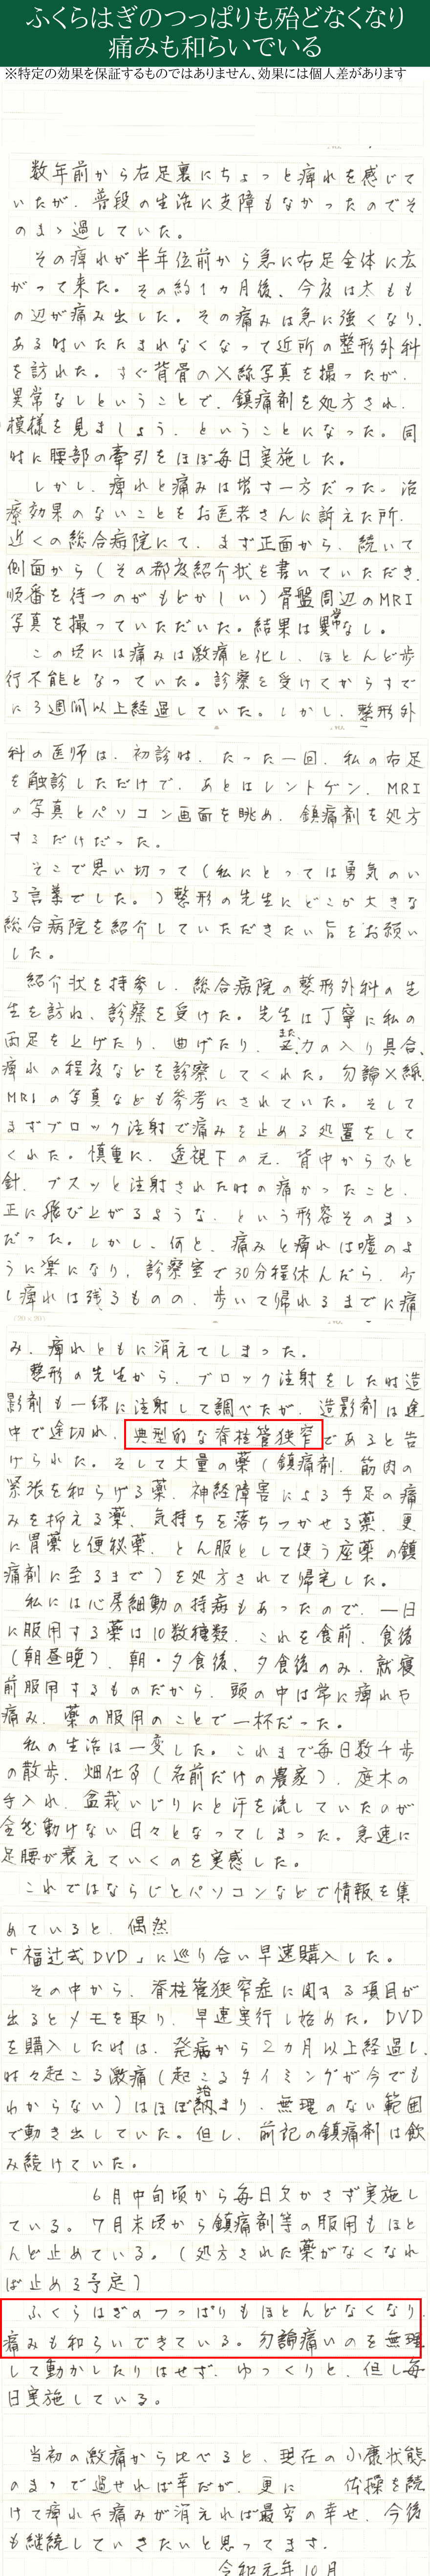 ふくらはぎのつっぱりも殆どなくなり
痛みも和らいでいる
※特定の効果を保証するものではありません、効果には個人差があります
数年前から右足裏にちょっと痺れを感じて
いたが、普段の生活に支障もなかったのでそ
のまゝ過していた。
その痺れが半年位前から急に右足全体に広
がって来た。その約1カ月後、今度は太もも
の辺が痛み出した。その痛みは急に強くなり、
ある時いたたまれなくなって近所の整形外科
を訪れた。すぐ背骨のX線写真を撮ったが、
異常なしということで、鎮痛剤を処方され、
模様を見ましょう、ということになった。同
時に腰部の牽引をほぼ毎日実施した。
しかし、痺れと痛みは増す一方だった。治
療効果のないことをお医者さんに訴えた所、
近くの総合病院にて、まず正面から、続いて
側面から(その都度紹介状を書いていただき、
順番を待つのがもどかしい)骨盤周辺のMRI
写真を撮っていただいた。結果は異常なし。
この頃には痛みは激痛と化し、ほとんど歩
行不能となっていた。診察を受けてからすで
に3週間以上経過していた。しかし、整形外
科の医師は、初診時、たった一回、私の右足
を触診しただけで、あとはレントゲン、MRI
の写真とパソコン画面を眺め、鎮痛剤を処方
するだけだった。
そこで思い切って(私にとっては勇気のい
る言葉でした。)整形の先生にどこか大きな
総合病院を紹介していただきたい旨をお願い
した。
紹介状を持参し、総合病院の整形外科の先
生を訪ね、診察を受けた。先生は丁寧に私の
両足を上げたり、曲げたり、また、力の入り具合、
痺れの程度などを診察してくれた。勿論X線、
MRIの写真なども参考にされていた。そして
まずブロック注射で痛みを止める処置をして
くれた。慎重に、透視下の元、背中からひと
針、ブスッと注射された時の痛かったこと、
正に飛び上がるような、という形容そのまゝ
だった。しかし、何と、痛みと痺れは嘘のよ
うに楽になり、診察室で30分程休んだら、少
し痺れは残るものの、歩いて帰れるまでに痛
み、痺れともに消えてしまった。
整形の先生から、ブロック注射をした時造
影剤も一緒に注射して調べたが、造影剤は途
中で途切れ、典型的な脊柱管狭窄であると告
げられた。そして大量の薬(鎮痛剤、筋肉の
緊張を和らげる薬、神経障害による手足の痛
みを抑える薬、気持ちを落ちつかせる薬、更
に胃薬と便秘薬、とん服として使う座薬の鎮
痛剤に至るまで)を処方されて帰宅した。
私には心房細動の持病もあったので、一日
に服用する薬は10数種類、これを食前、食後
(朝昼晩)、朝・夕食後、夕食後のみ、就寝
前服用するものだから、頭の中は常に痺れや
痛み、薬の服用のことで一杯だった。
私の生活は一変した。これまで毎日数千歩
の散歩、畑仕事(名前だけの農家)、庭木の
手入れ、盆栽いじりにと汗を流していたのが
全然動けない日々となってしまった。急速に
足腰が衰えていくのを実感した。
これではならじとパソコンなどで情報を集
めていると、偶然
「福辻式DVD」に巡り合い早速購入した。
その中から、脊柱管狭窄症に関する項目が
出るとメモを取り、早速実行し始めた。DVD
を購入した時は、発病から2カ月以上経過し、
時々起こる激痛(起こるタイミングが今でも
わからない)はほぼ治まり、無理のない範囲
で動き出していた。但し、前記の鎮痛剤は飲
み続けていた。
6月中旬頃から毎日欠かさず実施し
ている。7月末頃から鎮痛剤等の服用もほと
んど止めている。(処方された薬がなくなれ
ば止める予定)
ふくらはぎのつっぱりもほとんどなくなり、
痛みも和らいできている。勿論痛いのを無理
して動かしたりはせず、ゆっくりと、但し毎
日実施している。
当初の激痛から比べると、現在の小康状態
のまゝで過せれば幸だが、更に 体操を続
けて痺れや痛みが消えれば最高の幸せ、今後
も継続していきたいと思ってます。
令和元年10月